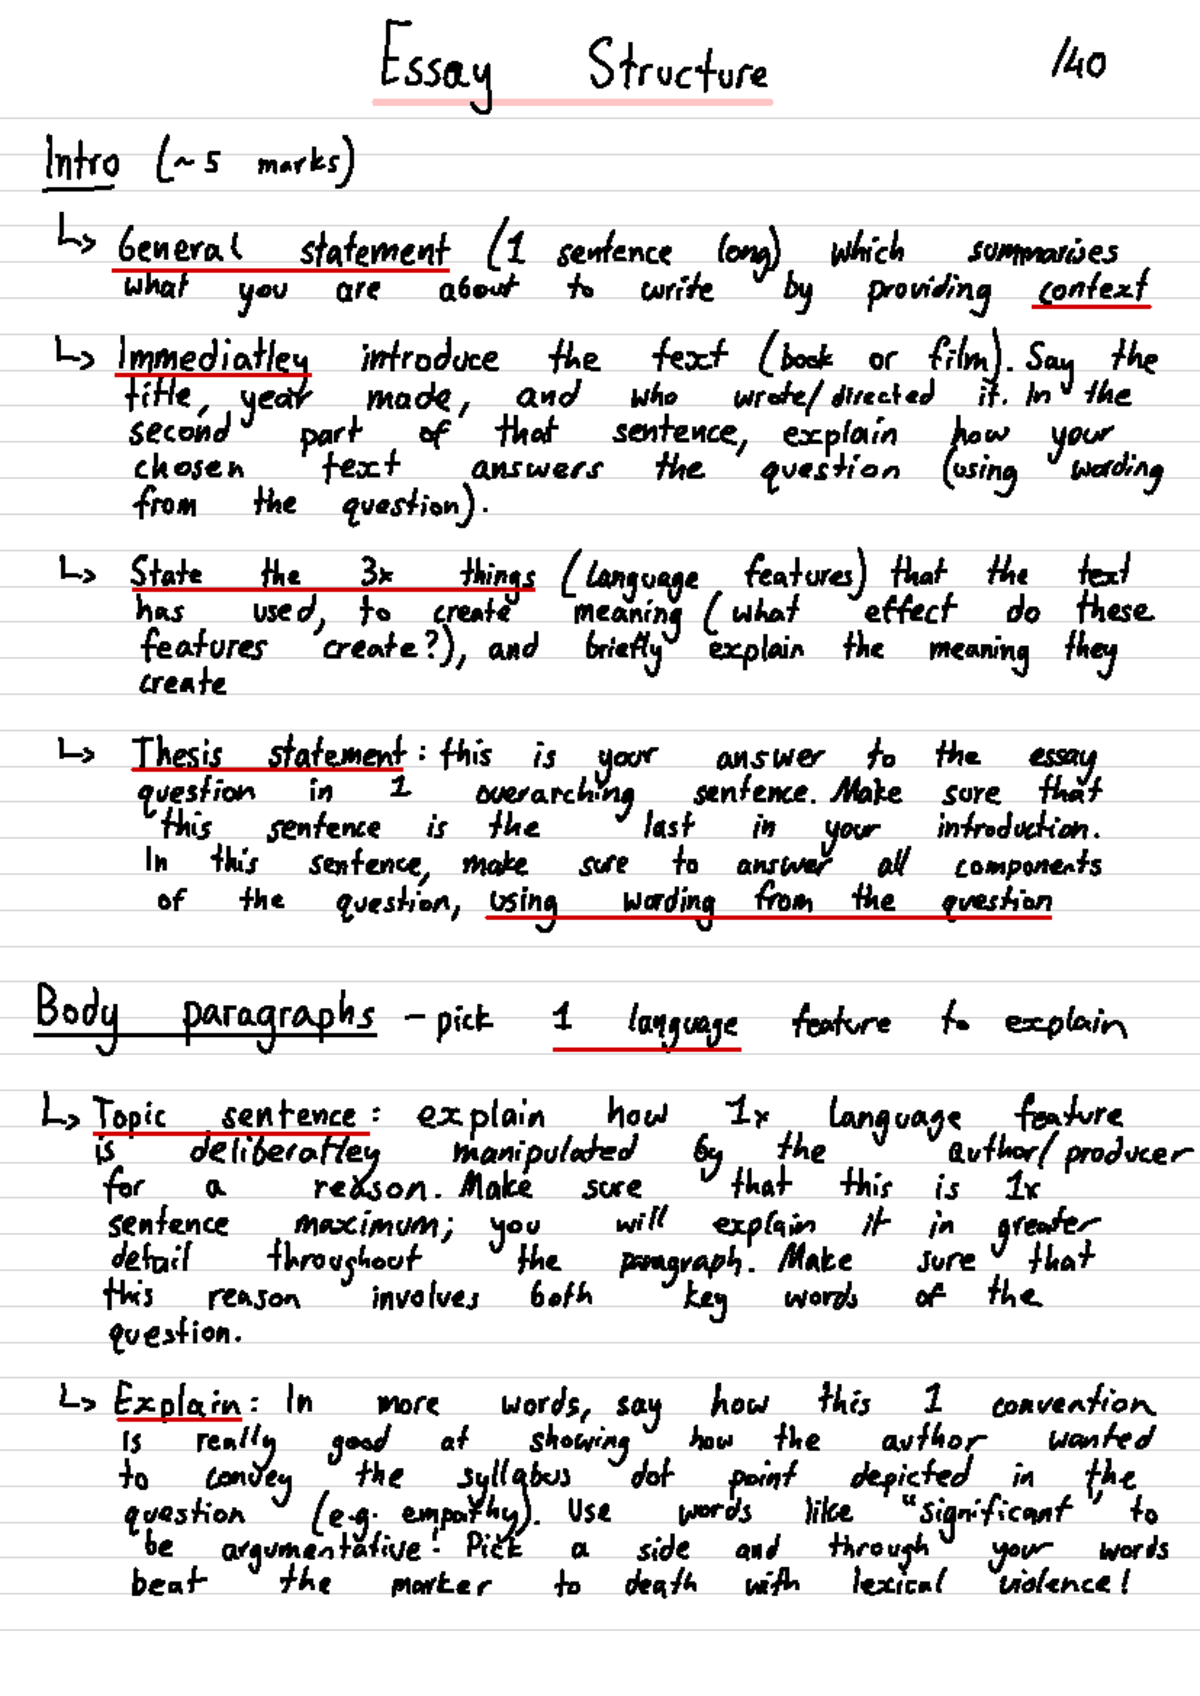 Essay Structure /40
Intro (~5 marks)
↳ General statement (1 sentence long) which summarises
what you are about to write by providing context
↳ Immediatley introduce the text (book or film). Say the
title, year made, and who wrote/directed it. In the
second part of that sentence, explain how your
chosen text answers the question (using wording
from the question).
↳ State the 3x things (language features) that the text
has used, to create meaning (what effect do these
features create?), and briefly explain the meaning they
create
↳ Thesis statement: this is your answer to the essay
question in 1 overarching sentence. Make sure that
this sentence is the last in your introduction.
In this sentence, make sure to answer all components
of the question, using wording from the question
Body paragraphs - pick 1 language feature to explain
↳ Topic sentence: explain how 1x language feature
is deliberatley manipulated by the author/producer
for a reason. Make sure that this is 1x
sentence maximum; you will explain it in greater
detail throughout the paragraph. Make sure that
this reason involves both key words of the
question.
↳ Explain: In more words, say how this 1 convention
is really good at showing how the author wanted
to convey the syllabus dot point depicted in the
question (e.g. empathy). Use words like "significant" to
be argumentative! Pick a side and through your words
beat the marker to death with lexical violence!